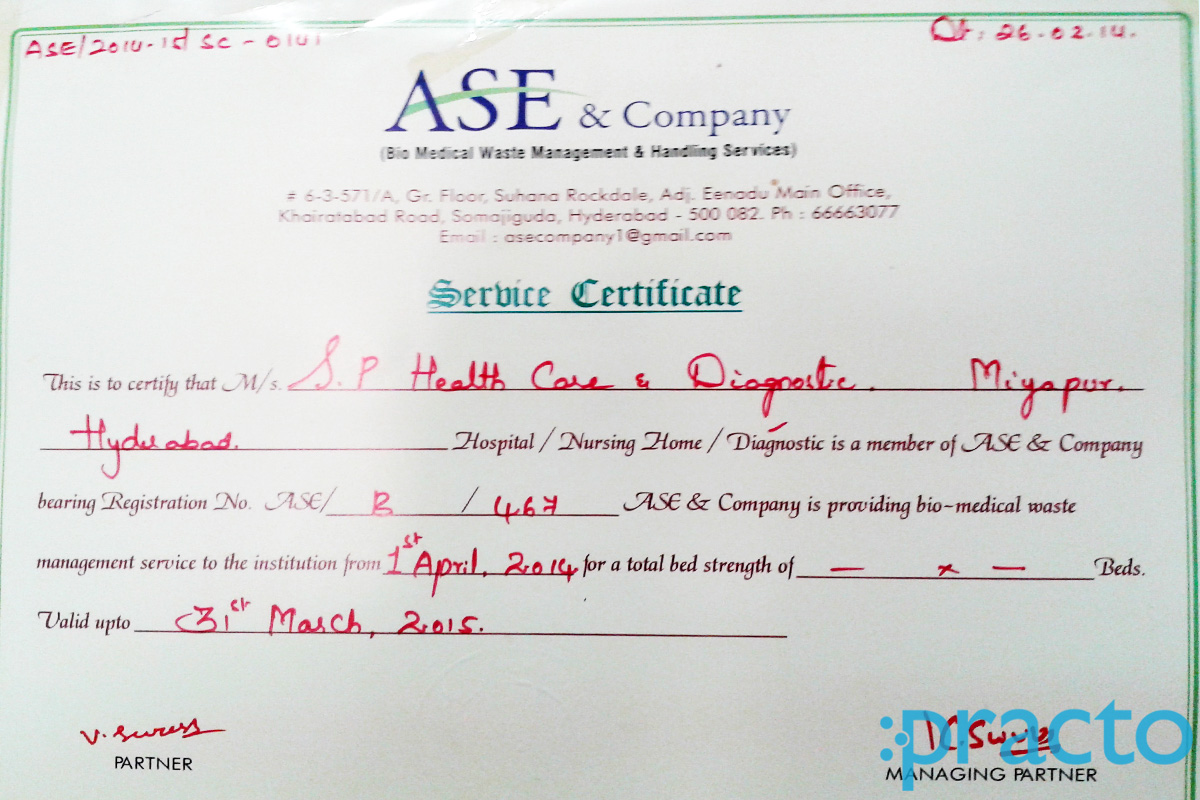 ASE/2014-1st SC - 0141 Dt: 26-02-14.
ASE & Company
(Bio Medical Waste Management & Handling Services)
# 6-3-571/A, Gr. Floor, Suhana Rockdale, Adj. Eenadu Main Office,
Khairatabad Road, Somajiguda, Hyderabad - 500 082. Ph : 66663077
Email : asecompany1@gmail.com
Service Certificate
This is to certify that M/s. S.P Health Care & Diagnostic. Miyapur.
Hyderabad. Hospital / Nursing Home / Diagnostic is a member of ASE & Company
bearing Registration No. ASE/ B / 467 ASE & Company is providing bio-medical waste
management service to the institution from 1st April, 2014 for a total bed strength of — x — Beds.
Valid upto 31st March, 2015.
V. Suress
PARTNER
:practo
MANAGING PARTNER